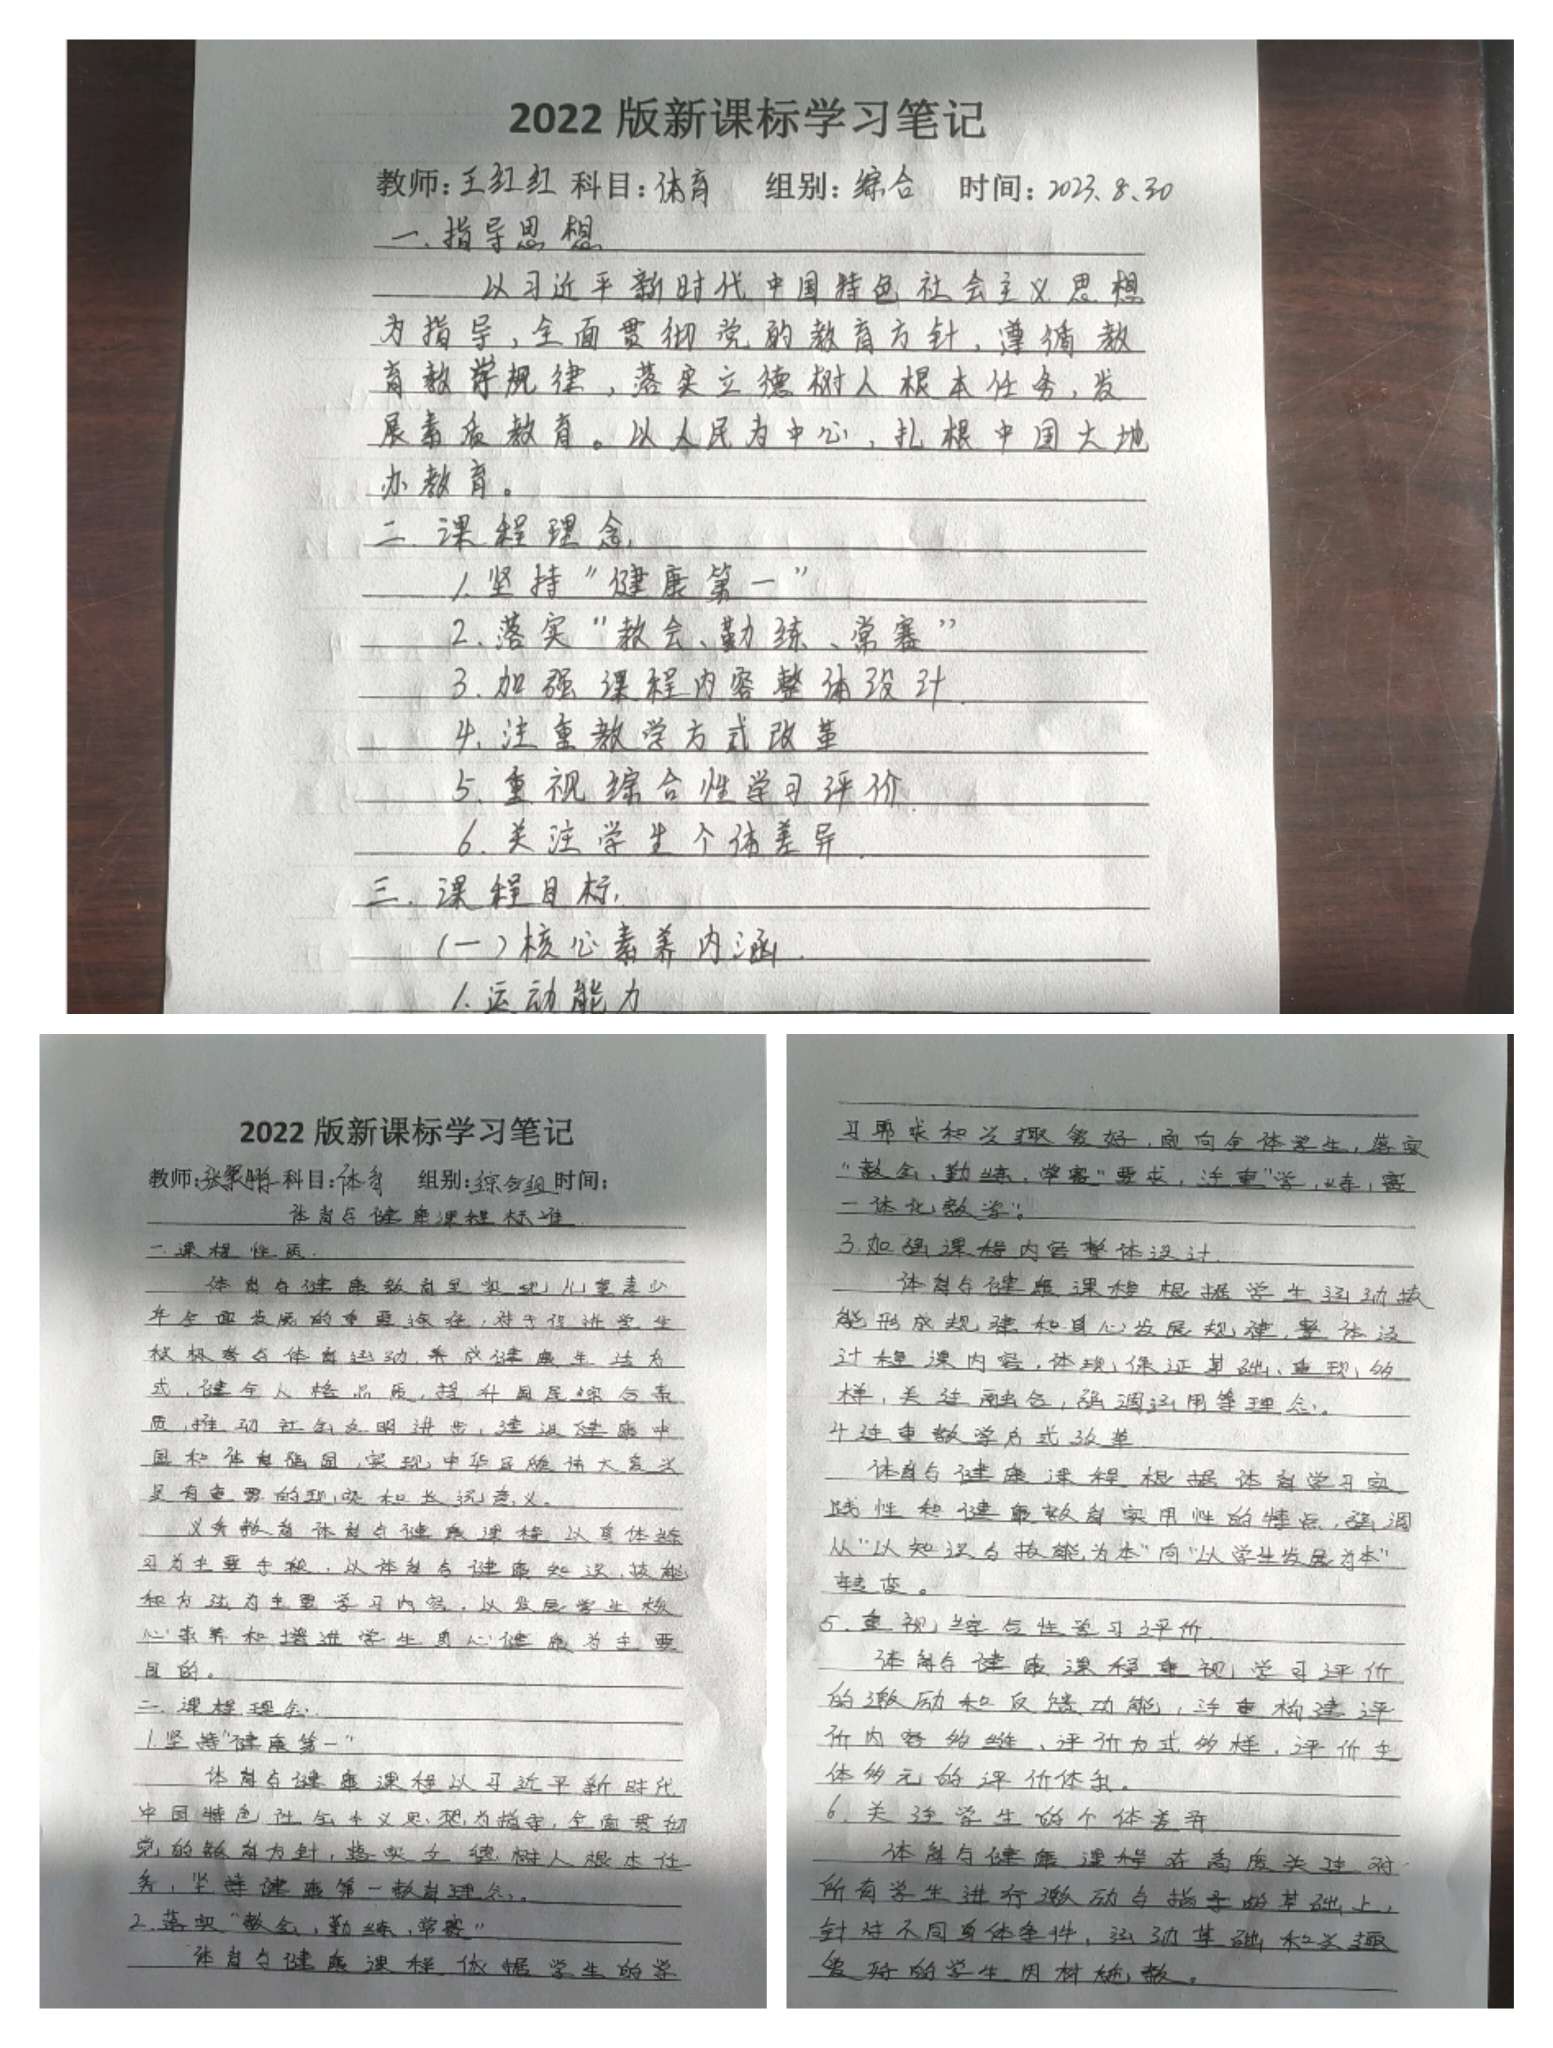 2022 版新课标学习笔记
教师:王红红 科目:体育 组别:综合 时间:2023.8.30
一.指导思想
以习近平新时代中国特色社会主义思想
为指导,全面贯彻党的教育方针,遵循教
育教学规律,落实立德树人根本任务,发
展素质教育。以人民为中心,扎根中国大地
办教育。
二.课程理念.
1.坚持“健康第一”
2.落实“教会、勤练、常赛”
3.加强课程内容整体设计.
4.注重教学方式改革
5.重视综合性学习评价.
6.关注学生个体差异.
三.课程目标.
(一)核心素养内涵.
1.运动能力
2022 版新课标学习笔记
教师: 科目:体育 组别:综合组 时间:
体育与健康课程标准.
一.课程性质.
体育与健康教育是实现儿童青少
年全面发展的重要途径,对于促进学生
积极参与体育运动,养成健康生活方
式,健全人格品质,提升国民综合素
质,推动社会文明进步,建设健康中
国和体育强国,实现中华民族伟大复兴
具有重要的现实和长远意义。
义务教育体育与健康课程以身体练
习为主要手段,以体育与健康知识,技能
和方法为主要学习内容,以发展学生核
心素养和增进学生身心健康为主要
目的。
二.课程理念.
1.坚持“健康第一”
体育与健康课程以习近平新时代
中国特色社会主义思想为指导,全面贯彻
党的教育方针,落实立德树人根本任
务,坚持健康第一教育理念。
2.落实“教会,勤练,常赛”
体育与健康课程依据学生的学
习要求和兴趣爱好,面向全体学生,落实
“教会、勤练、常赛”要求,注重“学,练,赛
一体化教学”。
3.加强课程内容整体设计.
体育与健康课程根据学生运动技
能形成规律和身心发展规律,整体设
计程课内容,体现保证基础、重视多
样,关注融合,强调运用等理念。
4注重教学方式改革
体育与健康课程根据体育学习实
践性和健康教育实用性的特点,强调
从“以知识与技能为本”向“以学生发展为本”
转变。
5.重视综合性学习评价
体育与健康课程重视学习评价
的激励和反馈功能,注重构建评
价内容多维、评价方式多样,评价主
体多元的评价体系。
6.关注学生的个体差异
体育与健康课程在高度关注对
所有学生进行激励与指导的基础上,
针对不同身体条件,运动基础和兴趣
爱好的学生因材施教。